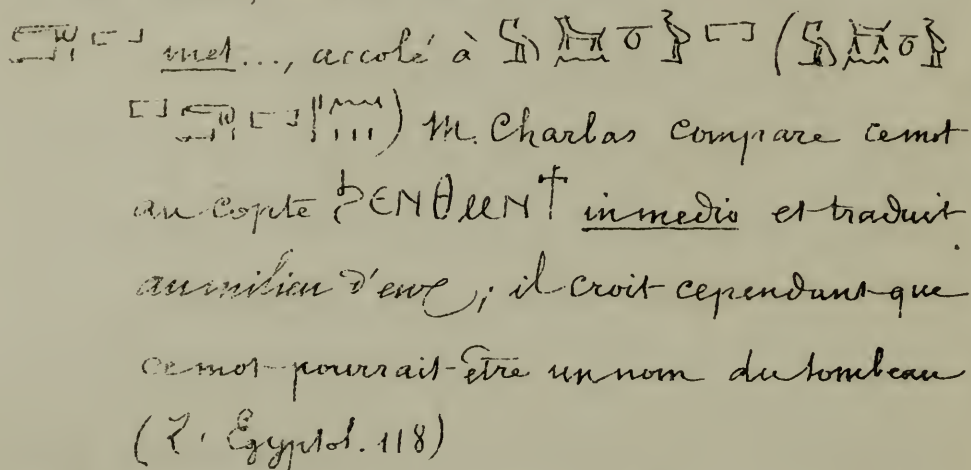 met..., accolé à (
) M. Charbas compare ce mot
au copte ϦΕΝΘΜΗϮ in medio et traduit
au milieu d'eux ; il croit cependant que
ce mot pourrait être un nom du tombeau
(Z. Egyptol. 118)